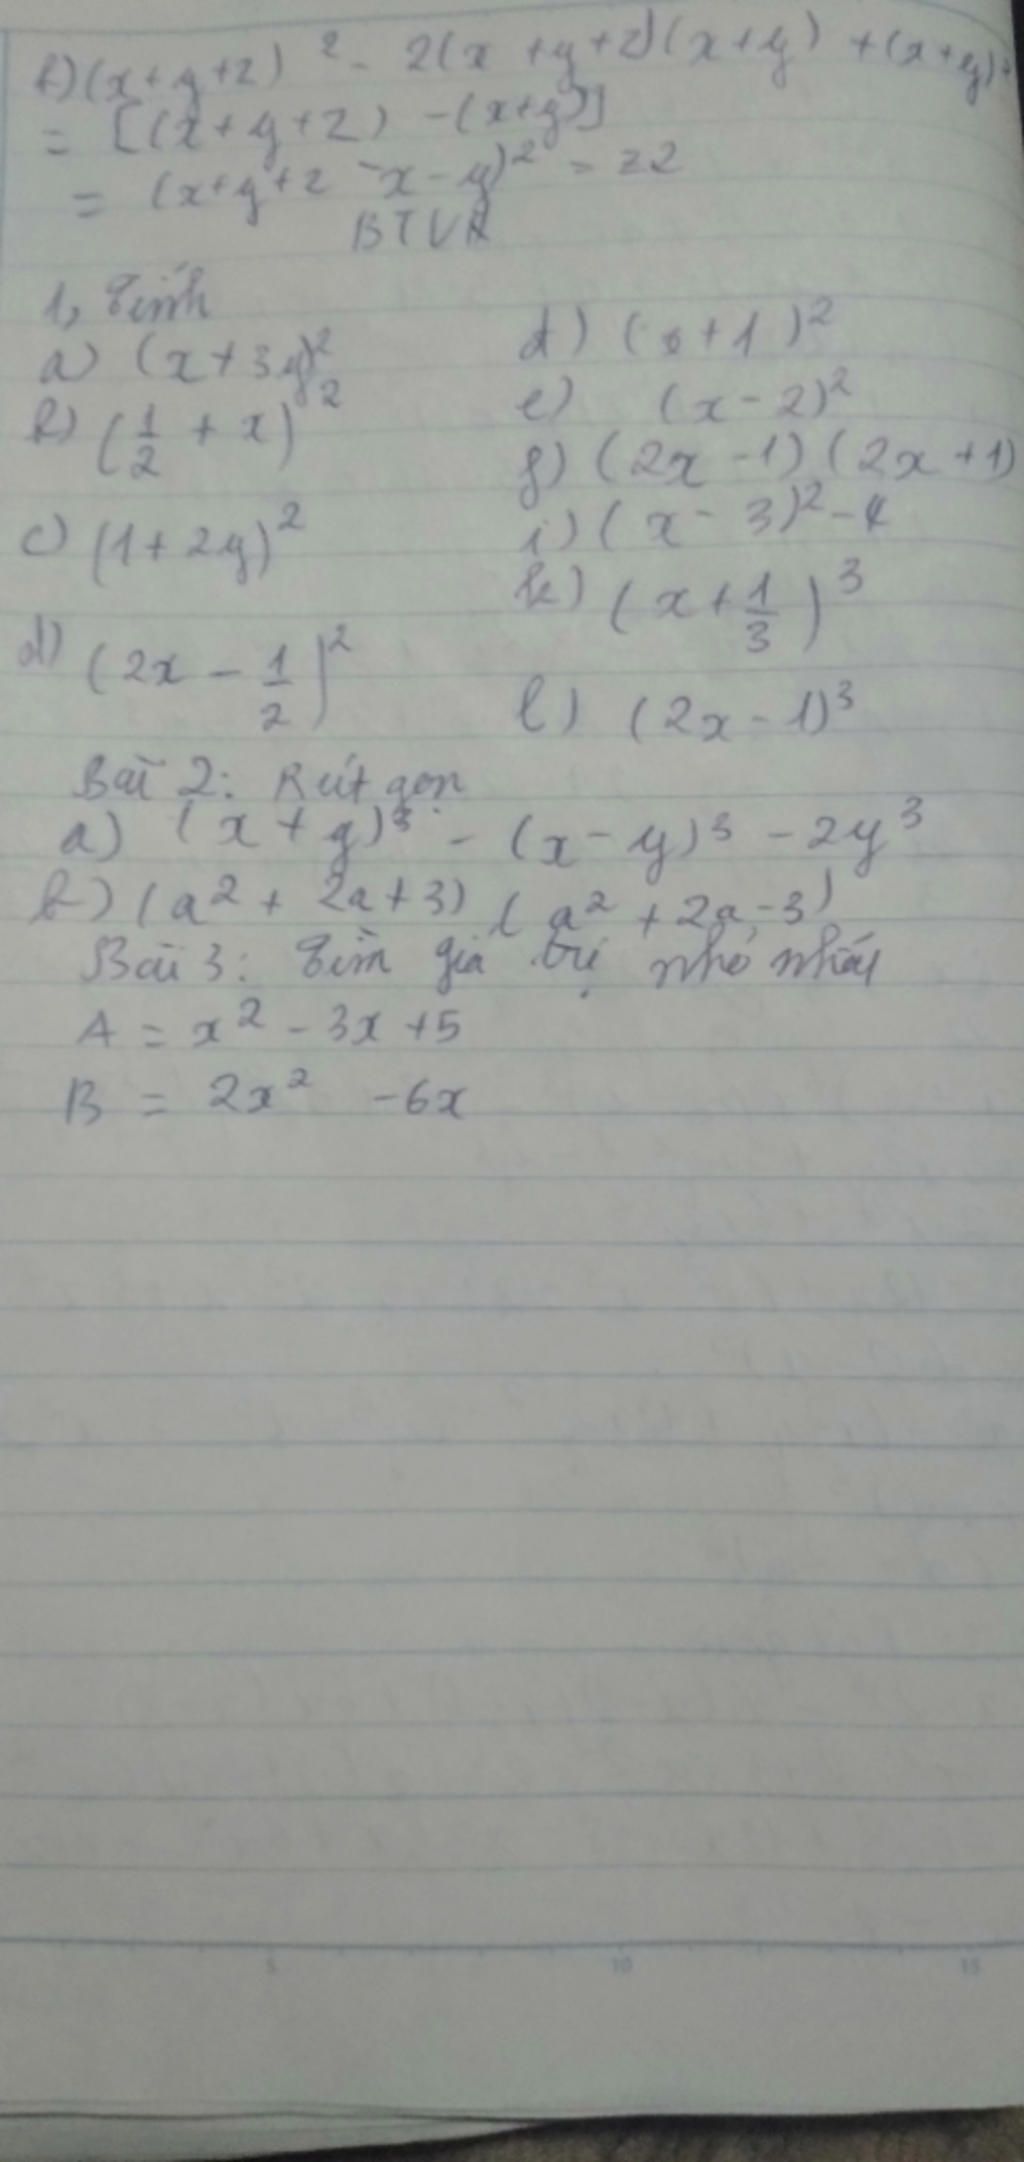 b) (x+y+z)² - 2(x+y+z)(x+y) + (x+y)²
= [(x+y+z) - (x+y)]
= (x+y+z -x-y)² = z2
BTVN
1, Tính
a) (x+3y)²
b) (1/2 + x)²
c) (1+2y)²
d) (2x - 1/2)²
d) (x+1)²
e) (x-2)²
g) (2x-1)(2x+1)
i) (x-3)²-4
k) (x+1/3)³
l) (2x-1)³
Bài 2: Rút gọn
a) (x+y)³ - (x-y)³ - 2y³
b) (a² + 2a+3) (a² + 2a-3)
Bài 3: Tìm giá trị nhỏ nhất
A = x² - 3x + 5
B = 2x² - 6x
5 10 15